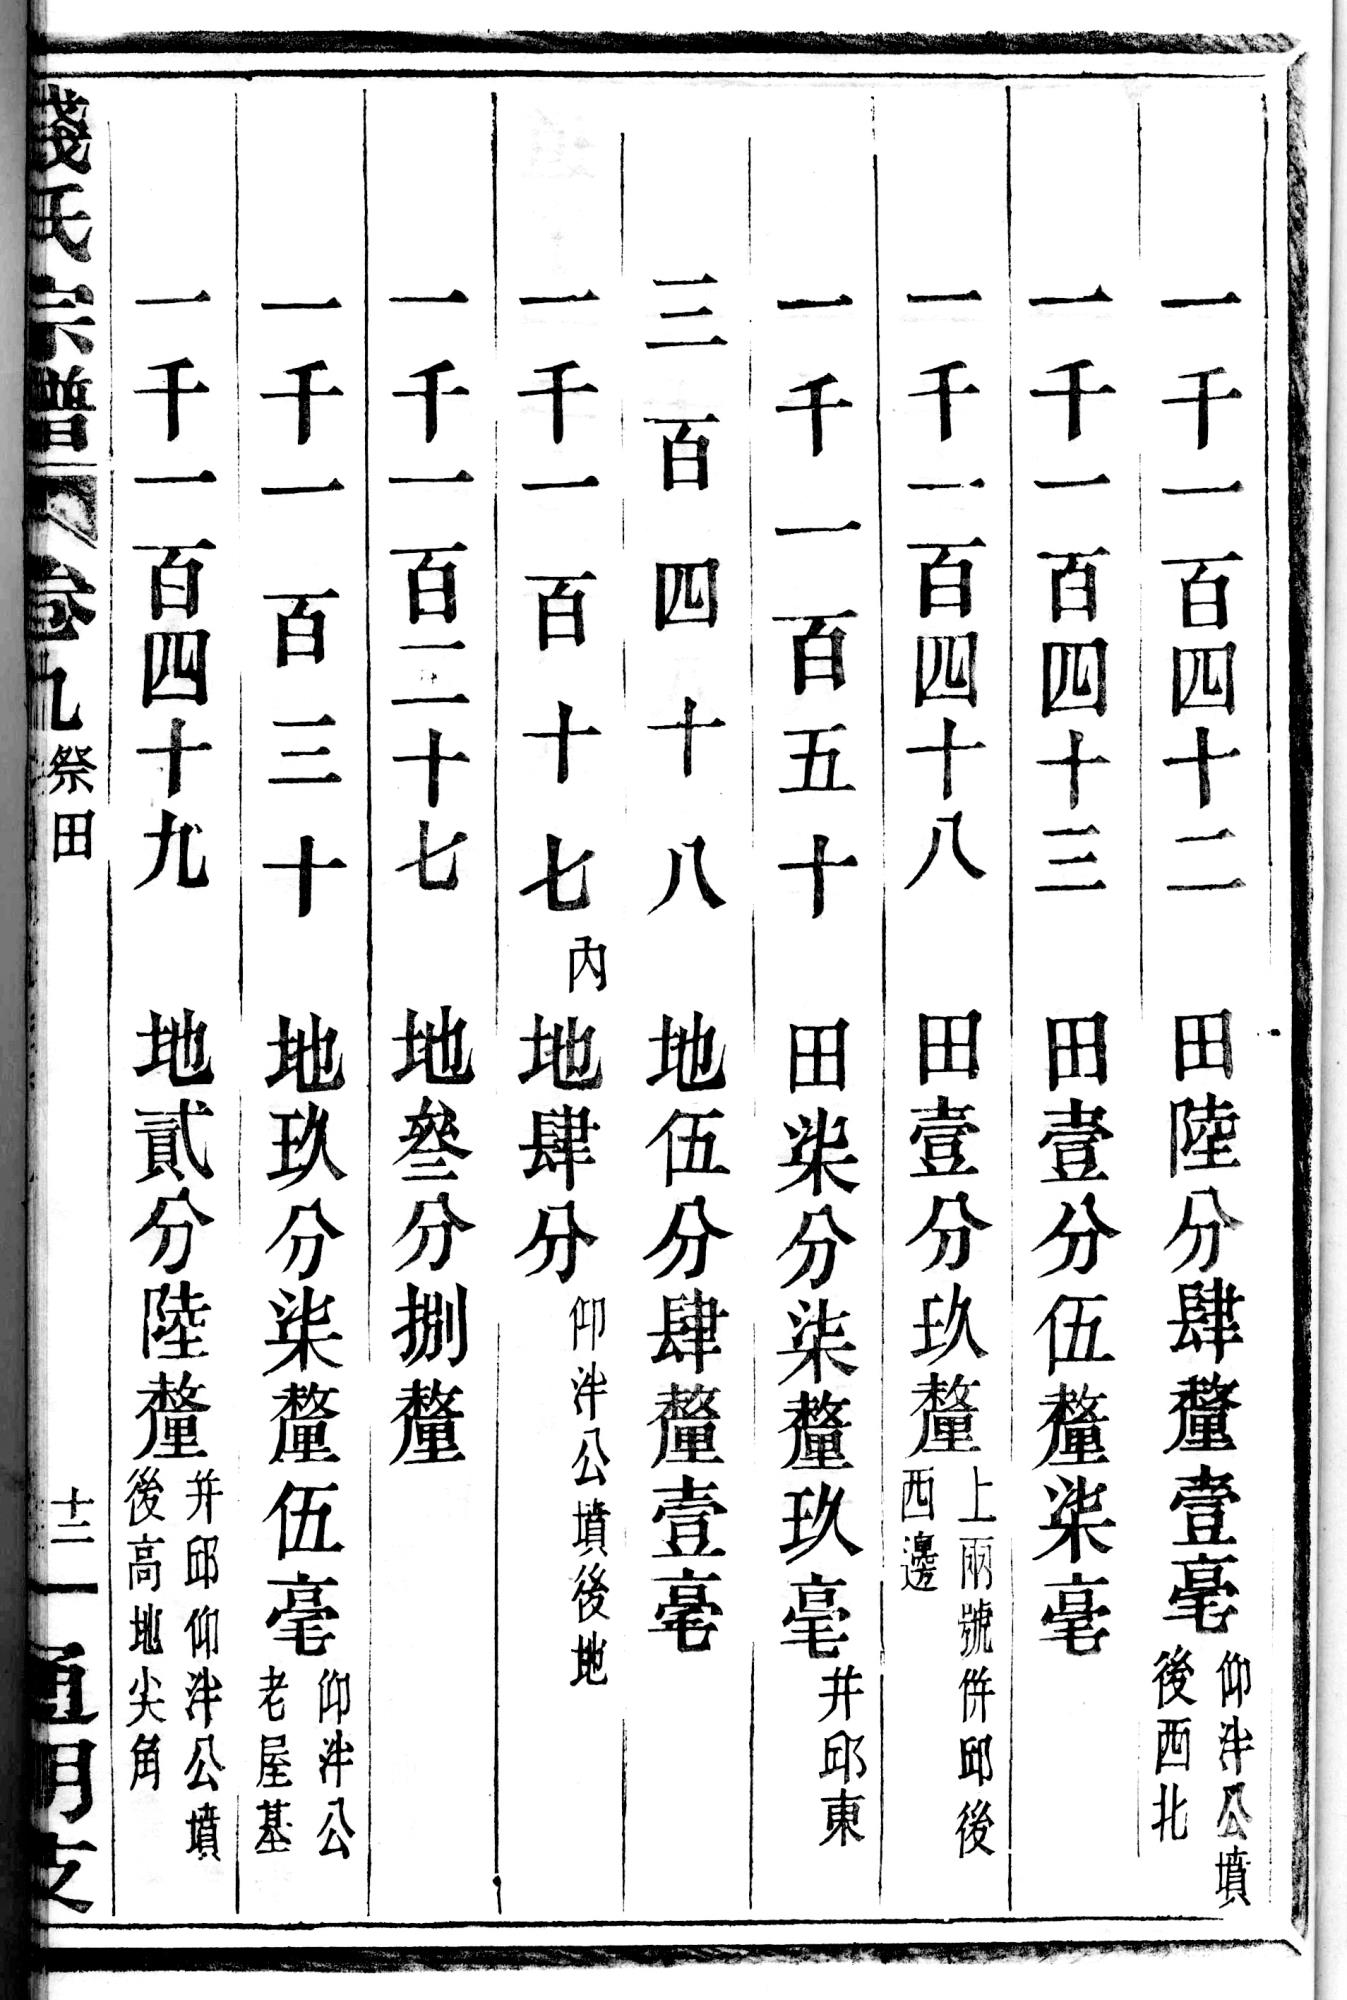 一千一百四十二　田陸分肆釐壹毫仰泮公墳後西北
一千一百四十三　田壹分伍釐柒毫
一千一百四十八　田壹分玖釐上兩號併邱後西邊
一千一百五十　田柒分柒釐玖毫井邱東
三百四十八　地伍分肆釐壹毫
一千一百十七內　地肆分仰泮公墳後地
一千一百二十七　地叄分捌釐
一千一百三十　地玖分柒釐伍毫仰泮公老屋基
一千一百四十九　地貳分陸釐井邱仰泮公墳後高地尖角
錢氏宗譜　卷九　祭田　十二　通明支